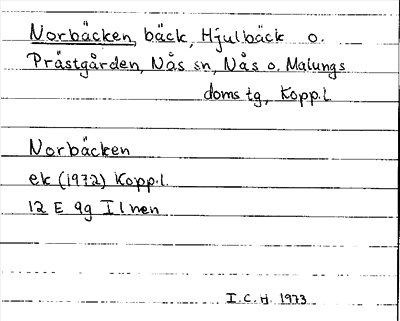 Norbäcken, bäck, Hjulbäck o.
Prästgården, Nås sn, Nås o. Malungs
doms tg, Kopp.l
Norbäcken
ek (1972) Kopp.l.
12 E 9g Ilnen
I.C.H. 1973